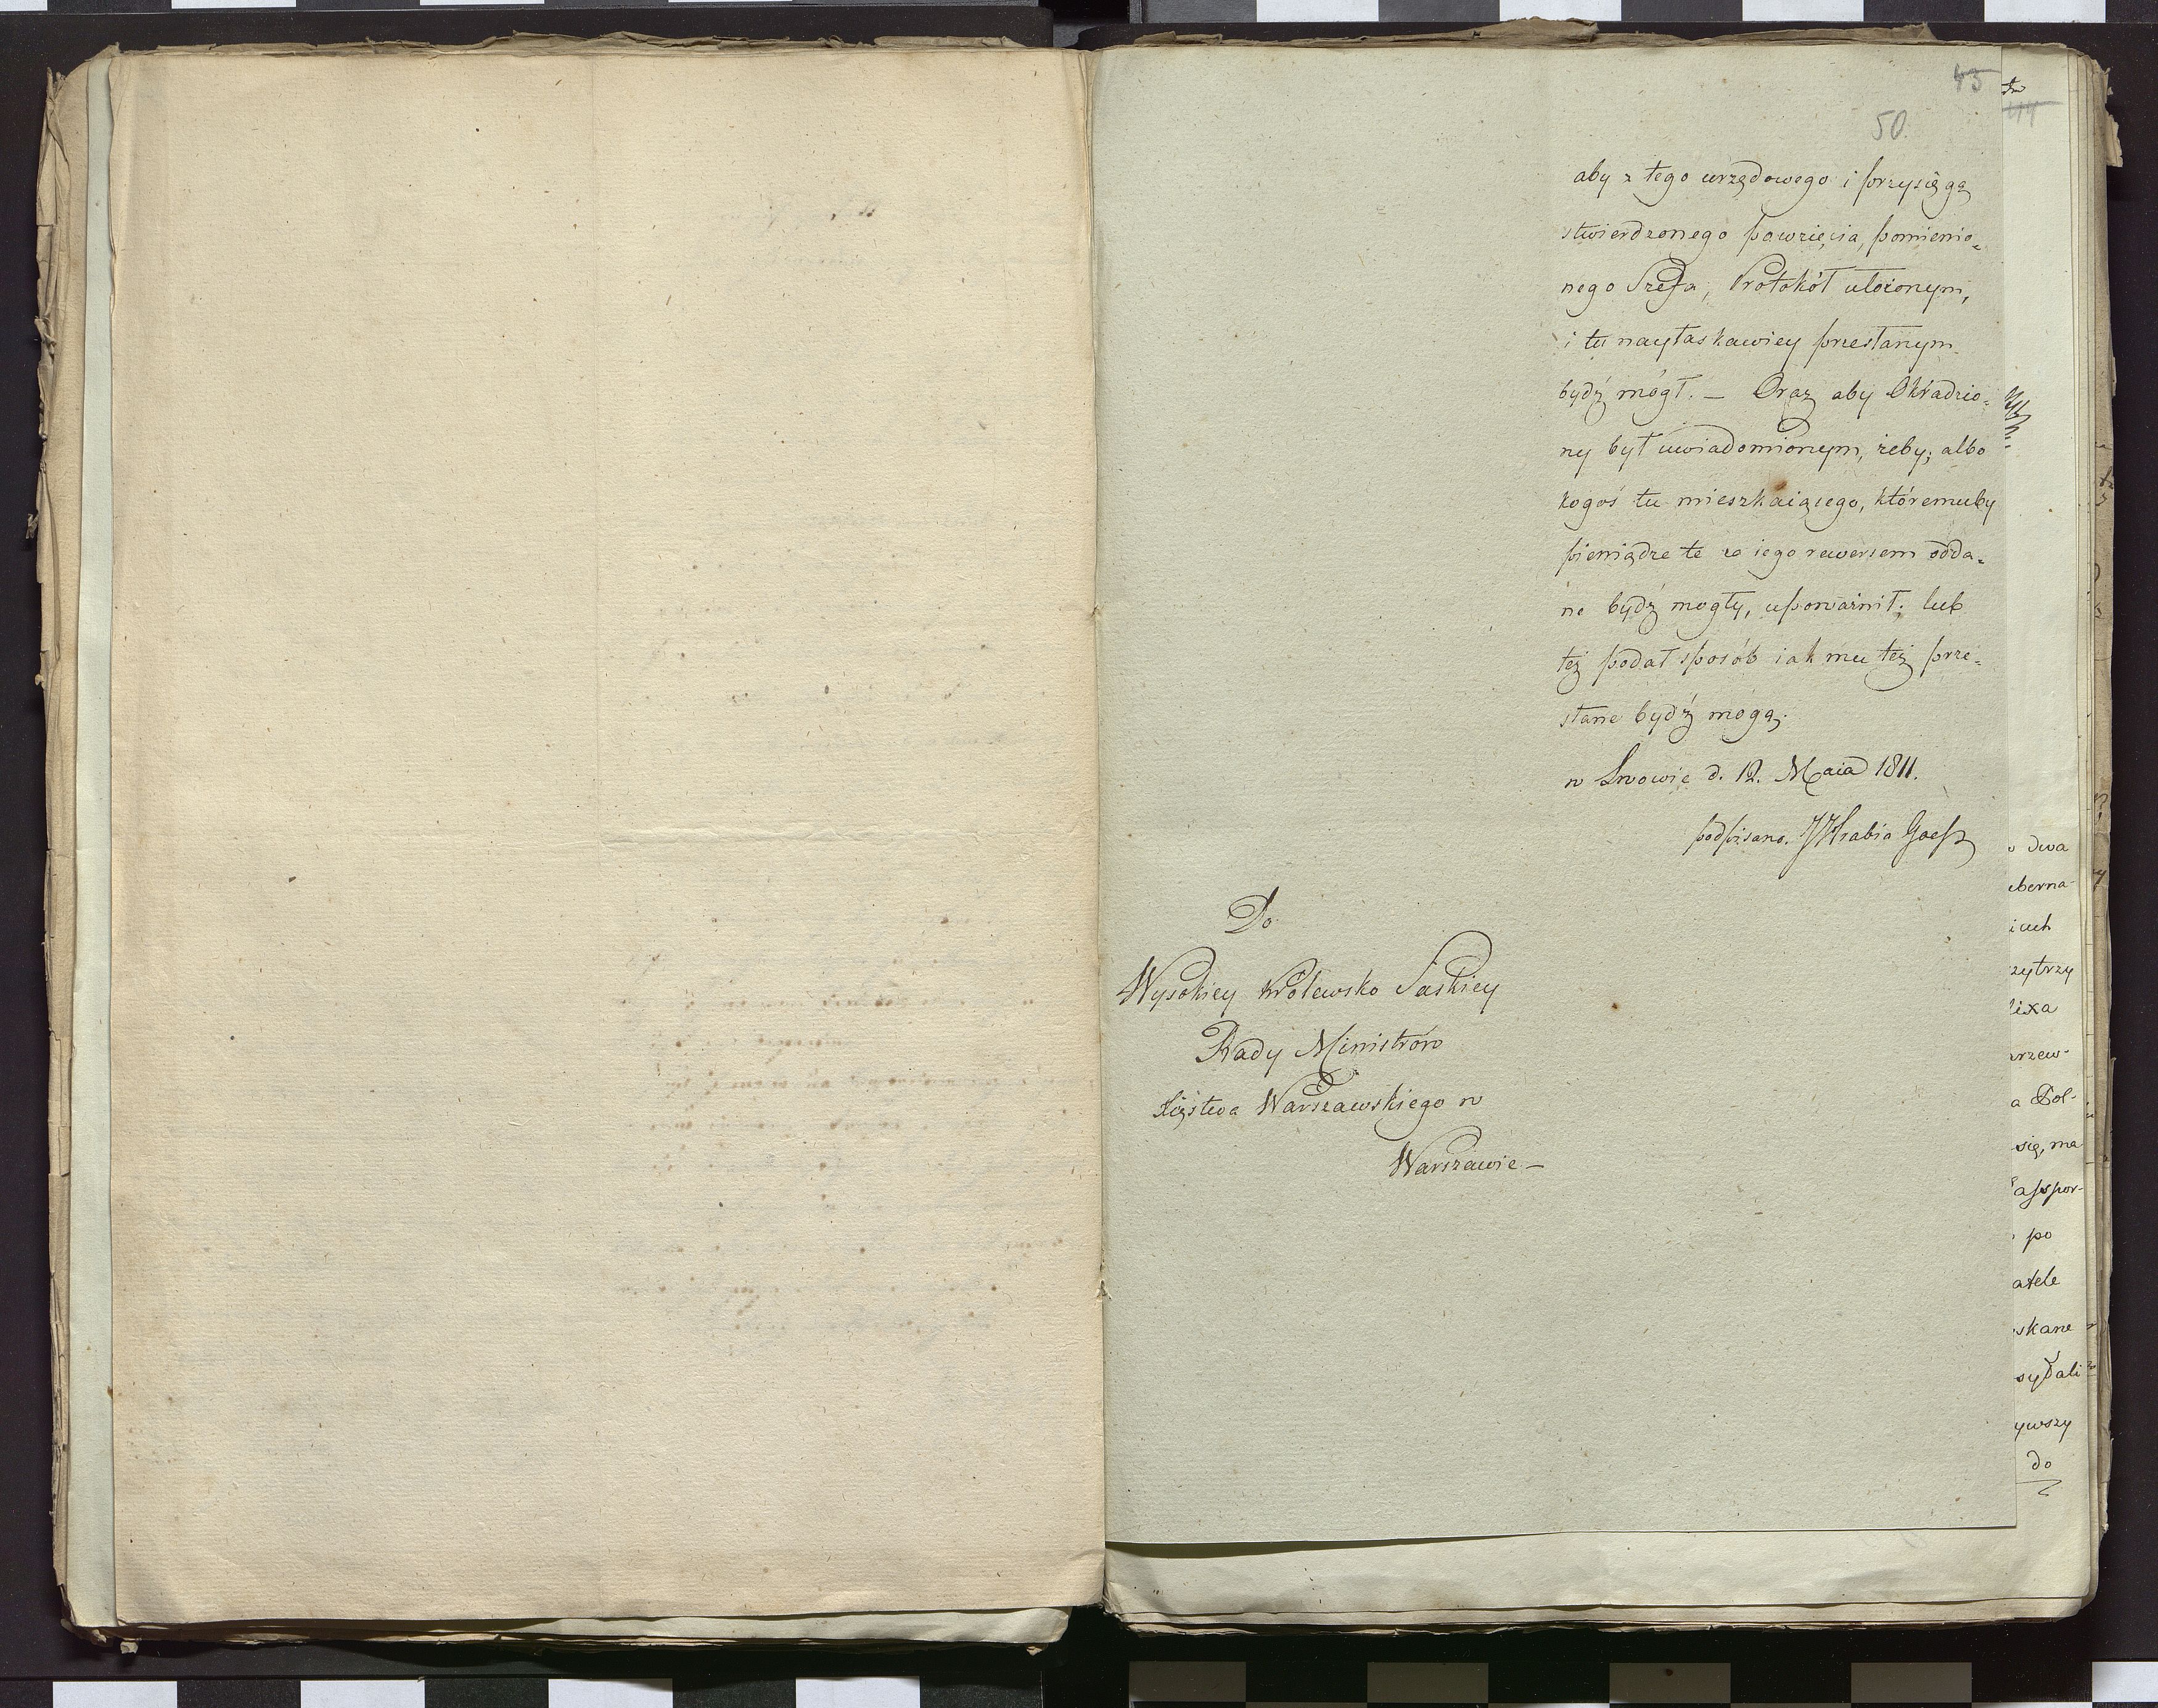 43
50.
aby z tego urzędowego i przysięgą
stwierdzonego powzięcia, pomienio=
nego Szefa, Protokół ułożonym,
i tu nayłaskawiey przesłanym
bydź mógł. — Oraz aby Okradzio=
ny był uwiadomionym, żeby; albo
kogoś tu mieszkaiącego, któremuby
pieniądze te za iego rewersem odda=
ne bydź mogły, upoważnił; lub
też podał sposób iak mu też prze=
słane bydź mogą.
w Lwowie d. 12. Maia 1811.
podpisano. Hrabia Goeß
Do
Wysokiey Królewsko Saskiey
Rady Ministrów
Xięstwa Warszawskiego w
Warszawie —
44
dwa
berna-
zytrzy
lixa
arzew-
a Pol-
się, ma
asspor-
po
atele
skane
ywszy
do